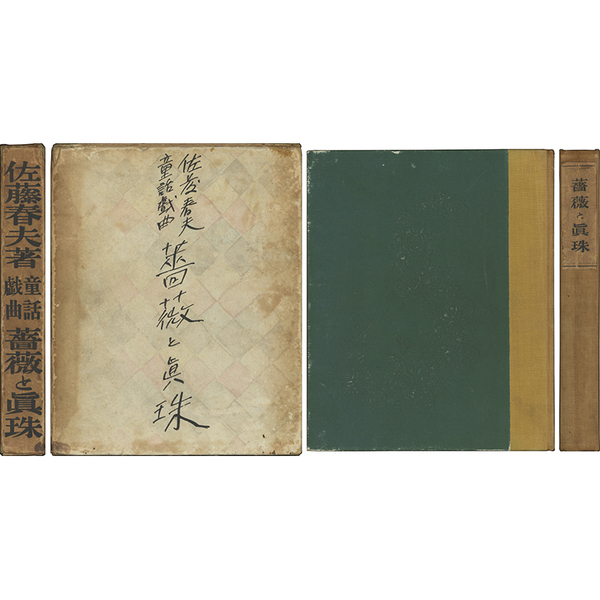 佐藤春夫著
童話
戯曲
薔薇と眞珠
佐藤春夫
童話戯曲
薔薇と眞珠
薔薇と眞珠